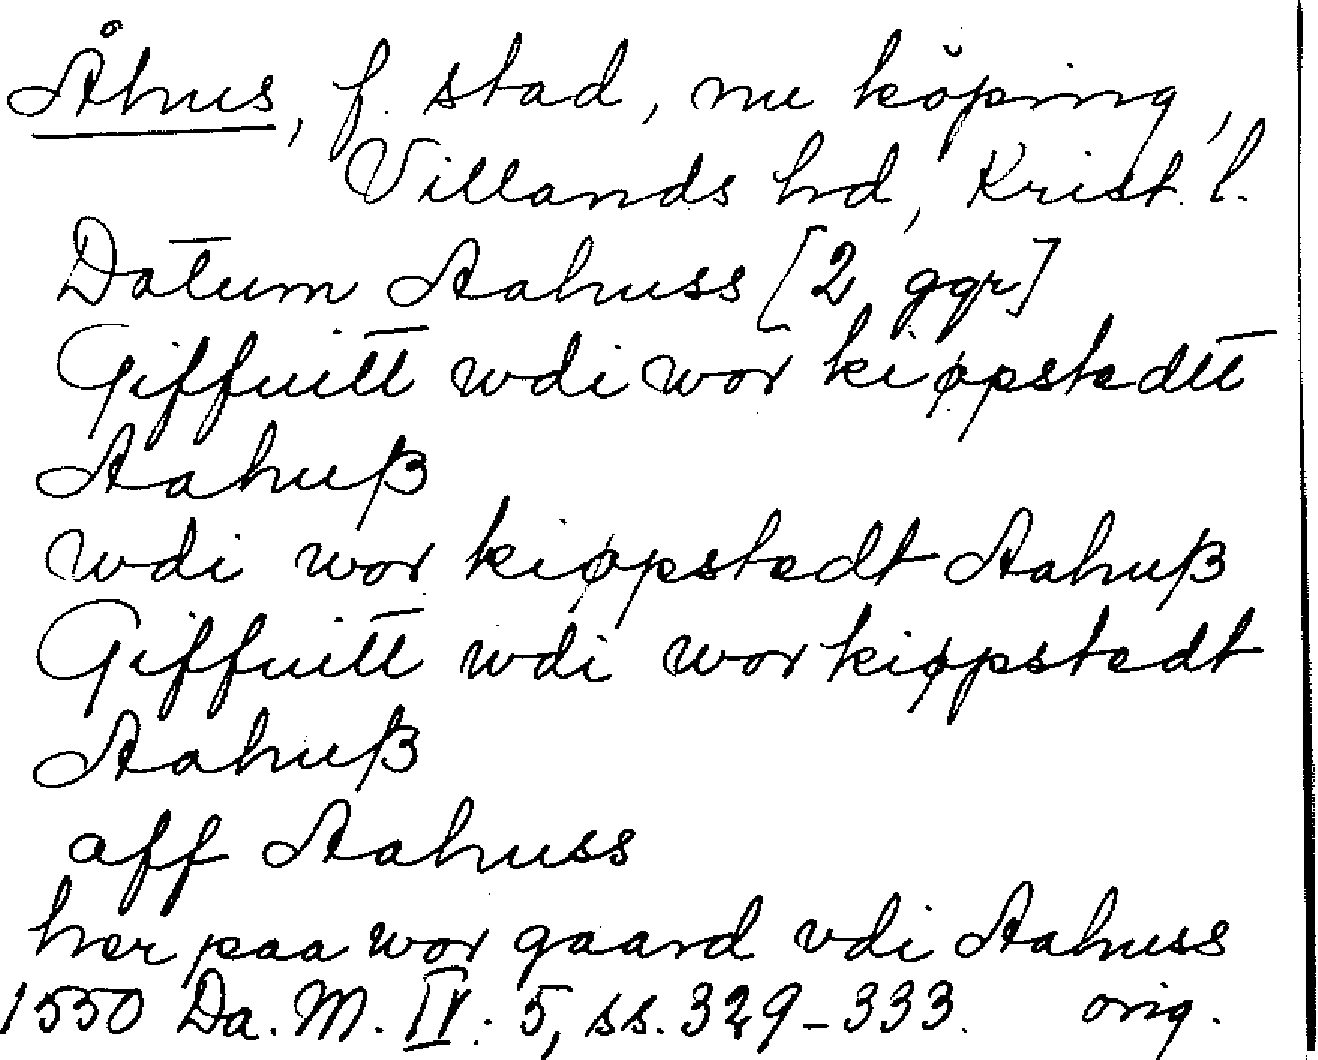 Åhus, f. stad, nu köping,
Villands hd, Krist. l.
Datum Aahuss [2 ggr]
Giffuitt wdi wor kiøpstedtt
Aahuß
wdi wor kiøpstedt Aahuß
Giffuitt wdi wor kiøpstedt
Aahuß
aff Aahuss
her paa wor gaard vdi Aahuss
1550 Da. M. IV. 5, ss. 329-333. orig.